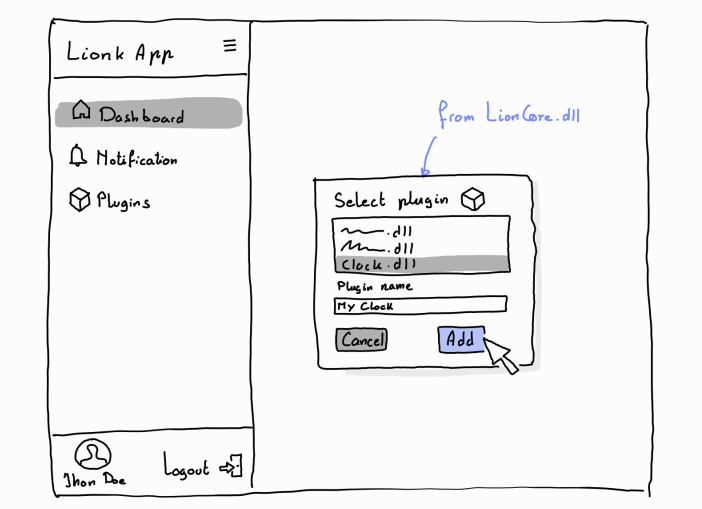 Lionk App
Dashboard
Notification
Plugins
Jhon Doe
Logout
from LionCore.dll
Select plugin
.dll
.dll
Clock.dll
Plugin name
My Clock
Cancel
Add